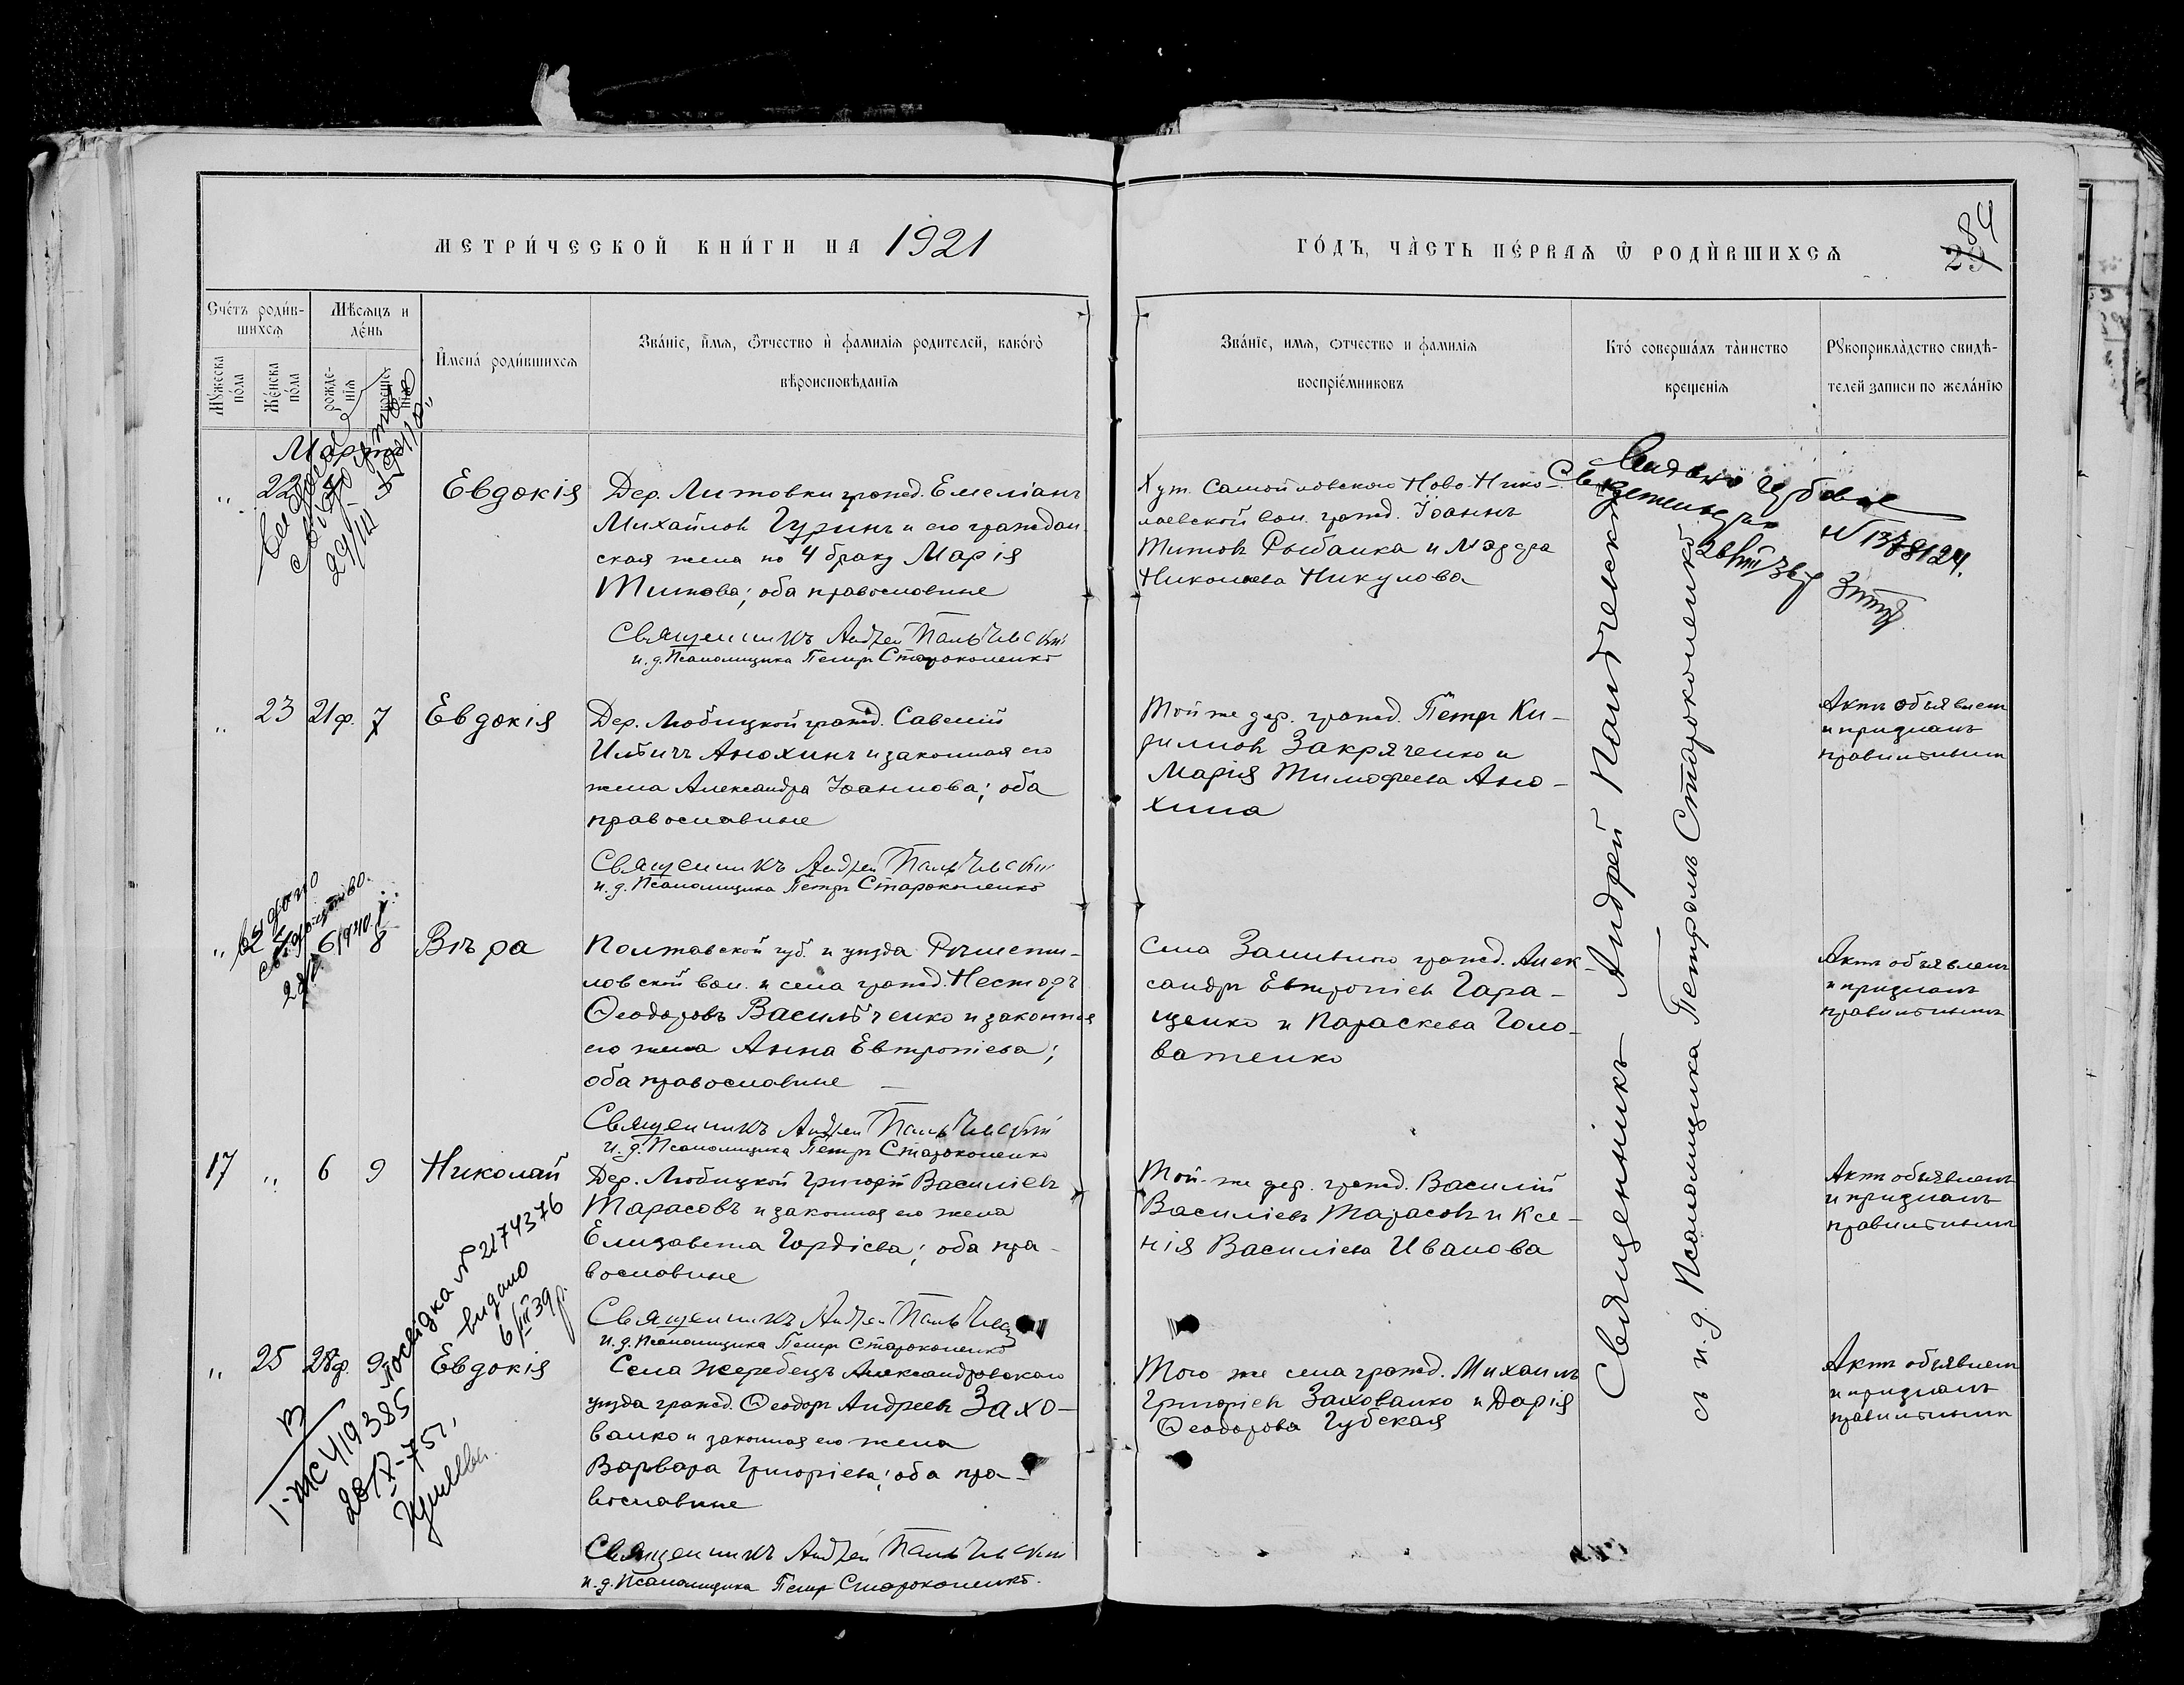 МЕТРИ́ЧЕСКОЙ КНИ́ГИ НА 1921
ГО́ДЪ, ЧА̀СТЬ ПЕ́РВАЯ Ѿ РОДИ́ВШИХСЯ
84
Сче́тъ роди́в-
шихся
Мѣ́сяцъ и
де́нь
Му́жеска
по́ла
Же́нска
по́ла
рожде-
нія
креще-
нія
И҆мена́ роди́вшихся
Зва́ніе, и҆́мя, ѻ҆́тчество и҆ фамилія родителей, како́гѡ
вѣроисповѣ́данія
Зва́ніе, имя, отчество и фамилія
воспріе́мниковъ
Кто́ соверша́лъ та̀инство
крещенія
Рукоприкла̀дство свидѣ-
телей записи по жела́нію
Мартъ
" 22
Евдокія
Дер. Литовки гражд. Емеліанъ
Михайловъ Гуринъ и его граждан
ская жена по 4 браку Марія
Титова; оба православные
Священникъ Андрей Пальчевскій
и. д. Псаломщика Петръ Староконенко
Хут. Самойловскаго Ново-Нико-
лаевской вол. гражд. Іоаннъ
Титовъ Рыбалка и
Николаева Никулова
29/III
N 1378124
" 23 21 ф. 7 Евдокія
Дер. Любицкой гражд. Савелій
Ильичъ Анохинъ и законная его
жена Александра Іоаннова; оба
православные
Священникъ Андрей Пальчевскій
и. д. Псаломщика Петръ Староконенко
Той же дер. гражд. Петръ Ки-
рилловъ Закряченко и
Марія Тимофеева Ано-
хина
Актъ объявленъ
и признанъ
правильнымъ
" 24 6 8 Вѣра
Видано
свідоцтво.
Полтавской губ. и уѣзда Рѣшети-
ловской вол. и села гражд. Несторъ
Ѳеодоровъ Васильченко и законная
его жена Анна Евтропіева;
оба православные
Священникъ Андрей Пальчевскій
и. д. Псаломщика Петръ Староконенко
Села гражд. Алек-
сандръ Евтропіевъ Гара-
щенко и Параскева Голо-
ватенко
Актъ объявленъ
и признанъ
правильнымъ
17 " 6 9 Николай
Дер. Любицкой Григорій Василіевъ
Тарасовъ и законная его жена
Елизавета Гордіева; оба пра-
вославные
Священникъ Андрей Пальчевскій
и. д. Псаломщика Петръ Староконенко
Той-же дер. гражд. Василій
Василіевъ Тарасовъ и Ксе-
нія Василіева Иванова
Актъ объявленъ
и признанъ
правильнымъ
Посвідка № 2174376
видано
6/III 39 р.
" 25 28 ф. 9 Евдокія
Села Жеребецъ Александровскаго
уѣзда гражд. Ѳеодоръ Андреевъ Захо-
валко и законная его жена
Варвара Григоріева; оба пра-
вославные
Священникъ Андрей Пальчевскій
и. д. Псаломщика Петръ Староконенко.
Того же села гражд. Михаилъ
Григоріевъ Заховалко и Дарія
Ѳеодорова Губская
Актъ объявленъ
и признанъ
правильнымъ
Священникъ Андрей Пальчевскій
съ и. д. Псаломщика Петромъ Староконенко